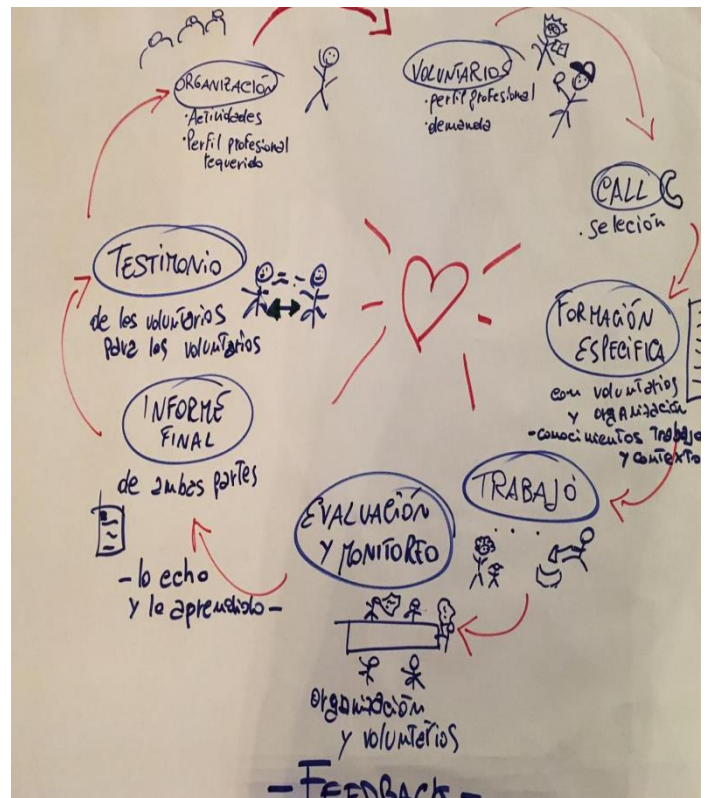 ORGANIZACIÓN
· Actividades
· Perfil profesional
requerido
VOLUNTARIOS
· perfil profesional
· demanda
CALL
· seleción
FORMACIÓN
ESPECIFICA
com voluntarios
y organización
- conocimientos trabajo
y contexto
TRABAJO
EVALUACIÓN
Y MONITOREO
organización
y voluntarios
- FEEDBACK -
INFORME
FINAL
de ambas partes
- lo echo
y lo aprendido -
TESTIMONIO
de los voluntarios
para los voluntarios